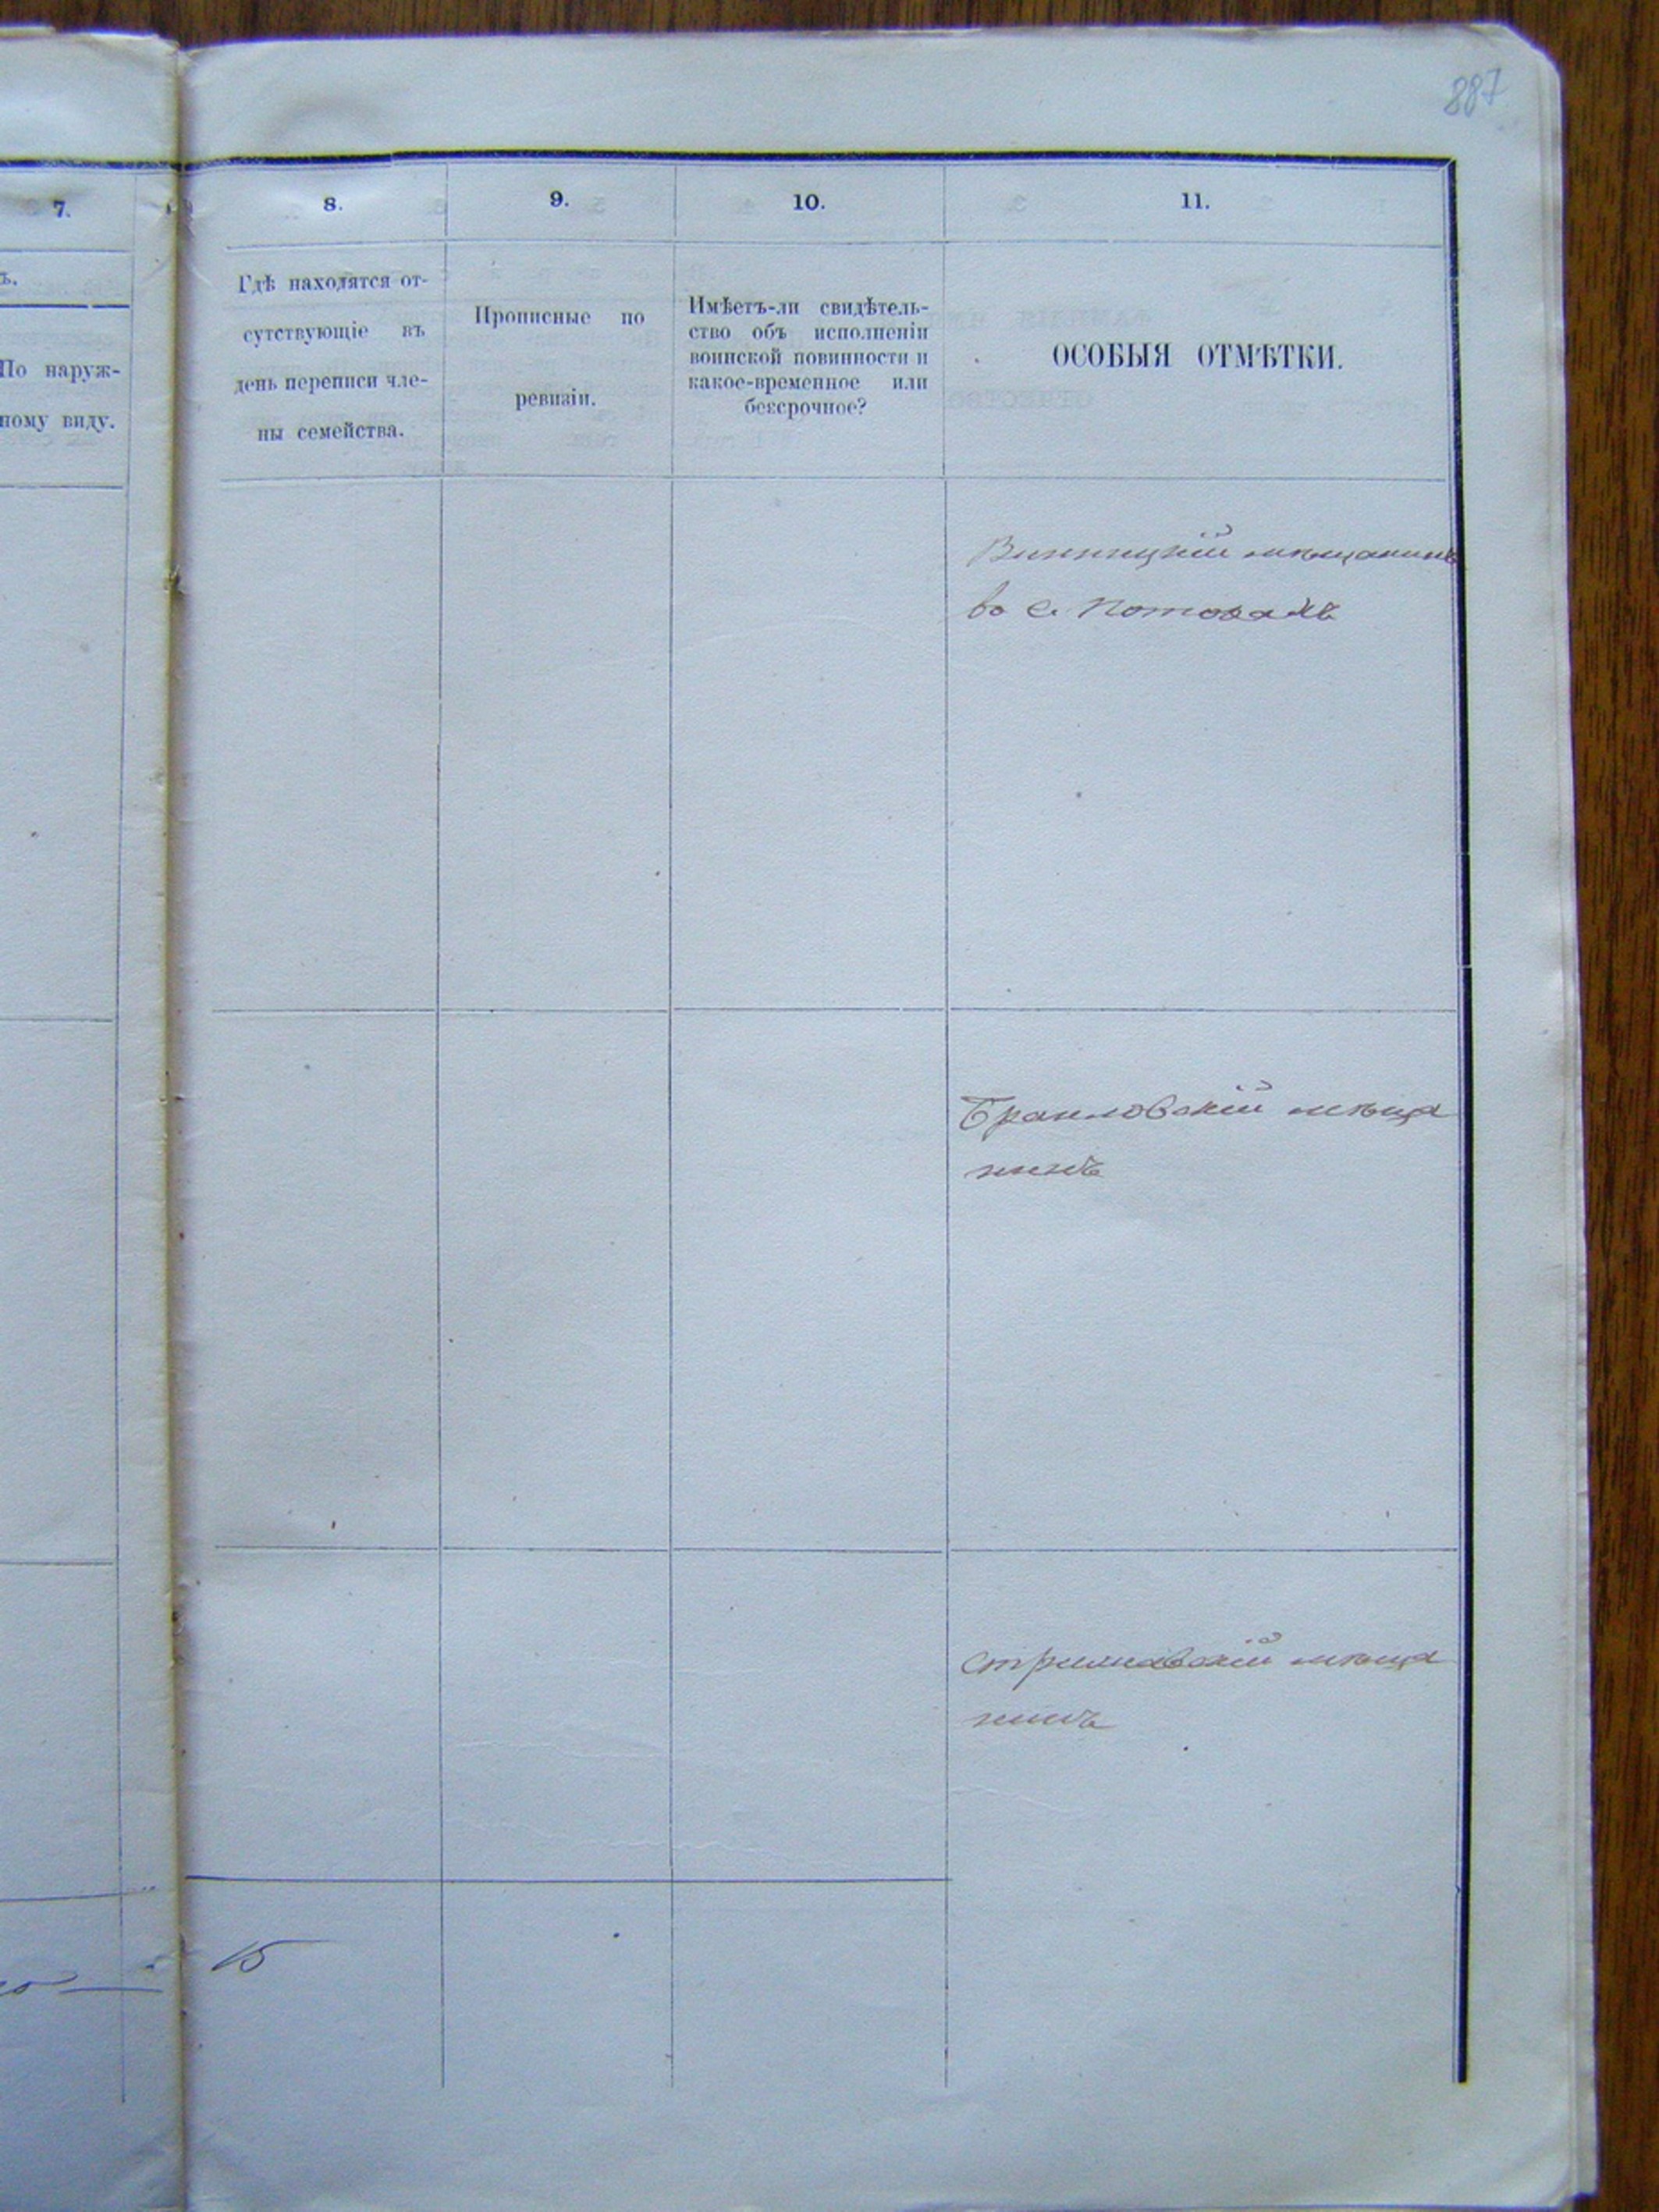 887
7.
8.
9.
10.
11.
ъ.
По наруж-
ному виду.
Гдѣ находятся от-
сутствующіе въ
день переписи чле-
ны семейства.
Прописные по
ревизіи.
Имѣетъ-ли свидѣтель-
ство объ исполненіи
воинской повинности и
какое-временное или
безсрочное?
ОСОБЫЯ ОТМѢТКИ.
Винницкій мѣщанинъ
во с.
Браиловскій мѣща
нинъ
мѣща
нинъ
15